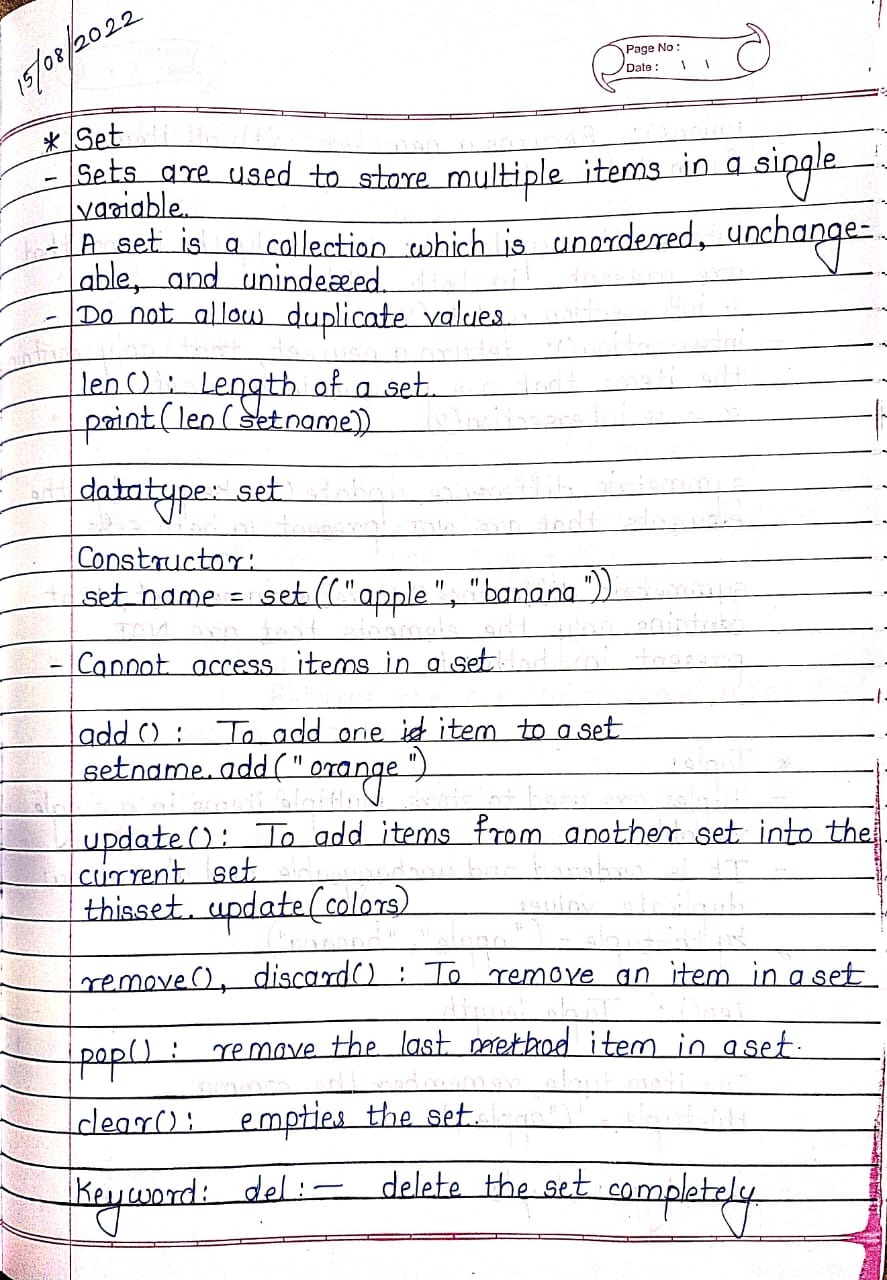 15/08/2022
Page No :
Date :
* Set
- Sets are used to store multiple items in a single
variable.
- A set is a collection which is unordered, unchange-
able, and unindexed.
- Do not allow duplicate values.
len() : Length of a set.
print(len(setname))
datatype: set
Constructor:
set_name = set(("apple", "banana"))
- Cannot access items in a set
add() : To add one item to a set
setname.add("orange")
update(): To add items from another set into the
current set
thisset.update(colors)
remove(), discard() : To remove an item in a set
pop() : remove the last item in a set.
clear(): empties the set.
Keyword: del :— delete the set completely.